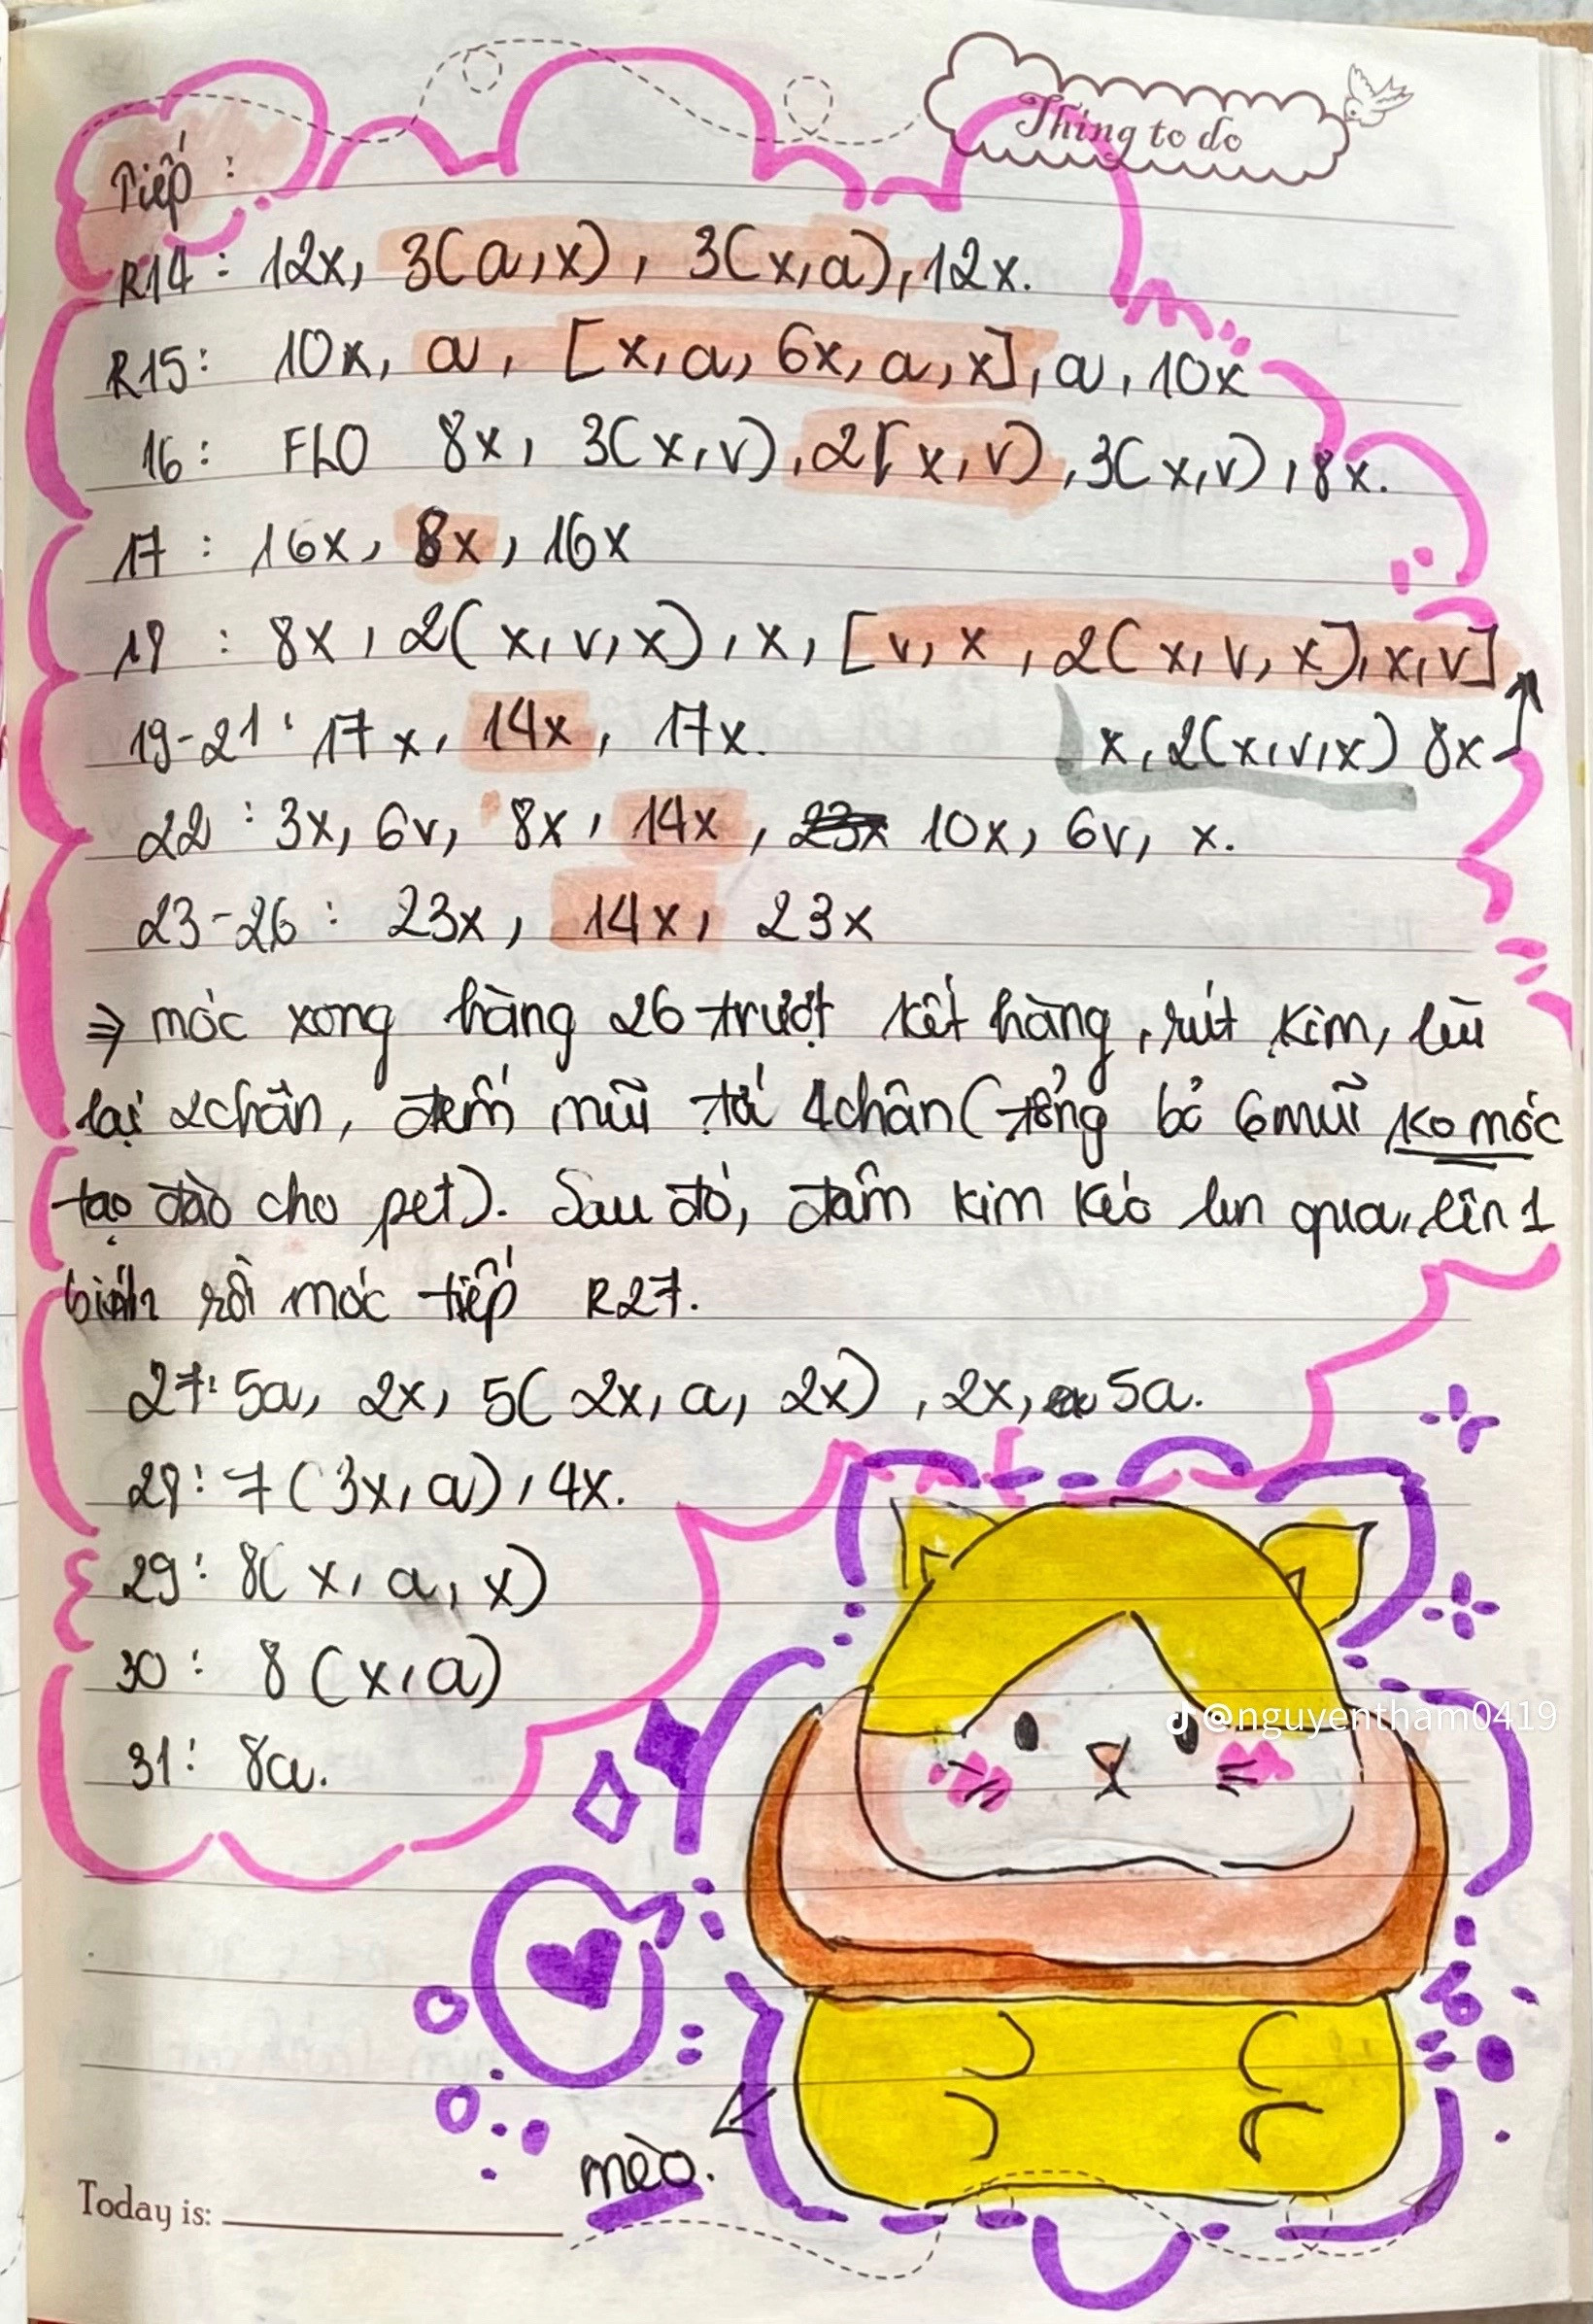 Thing to do
Tiếp :
R14 : 12x, 3(a,x), 3(x,a), 12x.
R15: 10x, a, [x, a, 6x, a, x], a, 10x
16: FLO 8x, 3(x,v), 2[x,v), 3(x,v), 8x.
17 : 16x, 8x, 16x
18 : 8x, 2(x, v, x), x, [v, x, 2(x, v, x), x, v]
x, 2(x,v,x) 8x
19-21: 17x, 14x, 17x.
22 : 3x, 6v, 8x, 14x, 23x 10x, 6v, x.
23-26 : 23x, 14x, 23x
⇒ móc xong hàng 26 trượt kết hàng, rút kim, lùi
lại 2chân, đếm mũi tới 4chân (tổng bỏ 6mũi ko móc
tạo đào cho pet). Sau đó, đâm kim kéo len qua, lên 1
bính rồi móc tiếp R27.
27: 5a, 2x, 5(2x, a, 2x), 2x, 5a.
28: 7(3x, a), 4x.
29: 8(x, a, x)
30: 8(x,a)
31: 8a.
@nguyentham0419
mèo.
Today is: